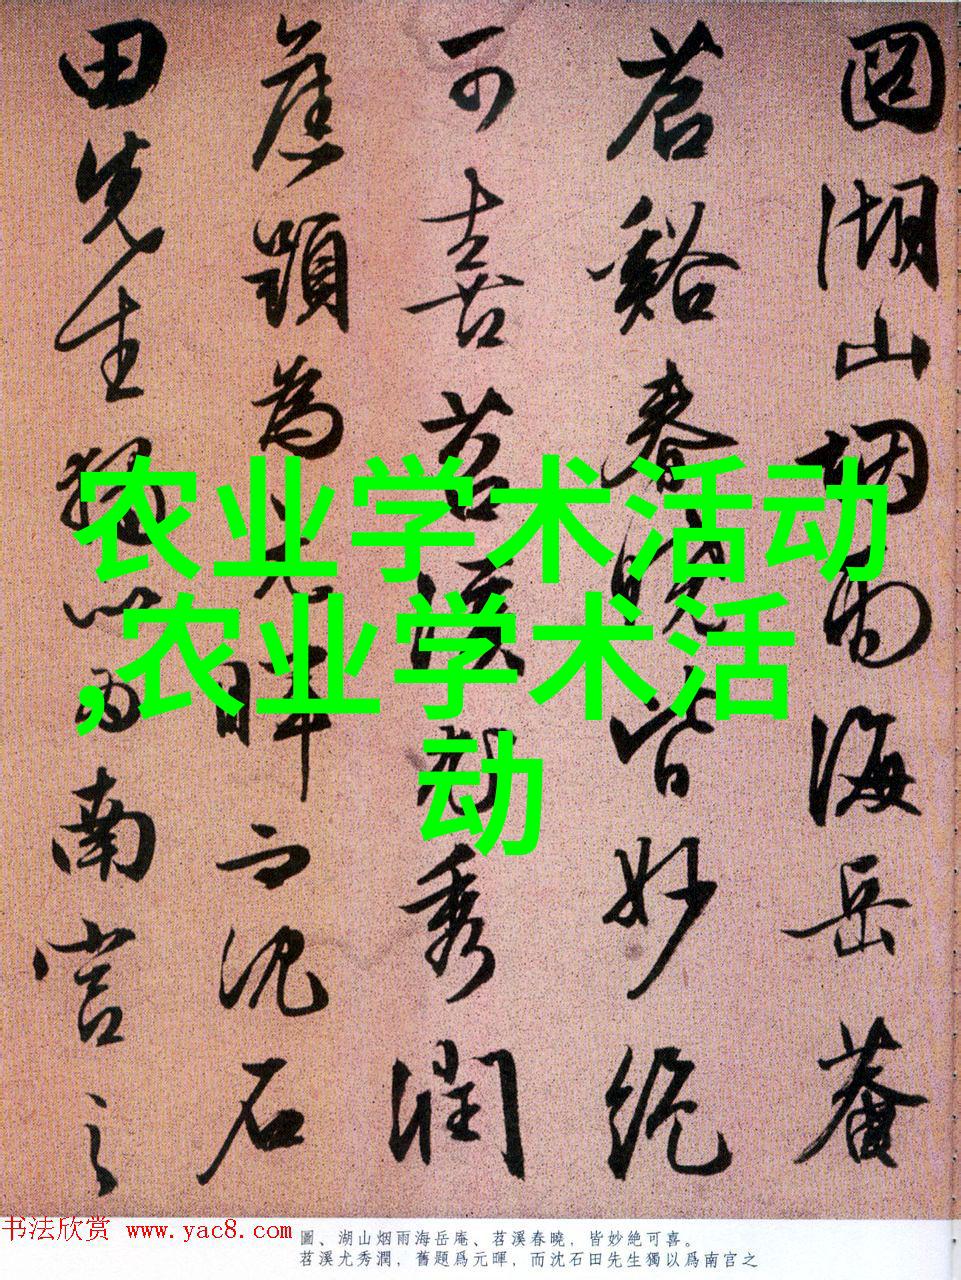 圖湖山烟雨海岳菴
苕谿春曉皆妙絕
可喜苕溪尤秀潤
舊題為元暉而沈石
田先生獨以為南宫之
农业学术活动
,农业学术活
动
书法欣赏 www.yac8.com
圖、湖山烟雨海岳庵、苕溪春曉，皆妙絶可喜。
苕溪尤秀潤，舊題爲元暉，而沈石田先生獨以爲南宫之